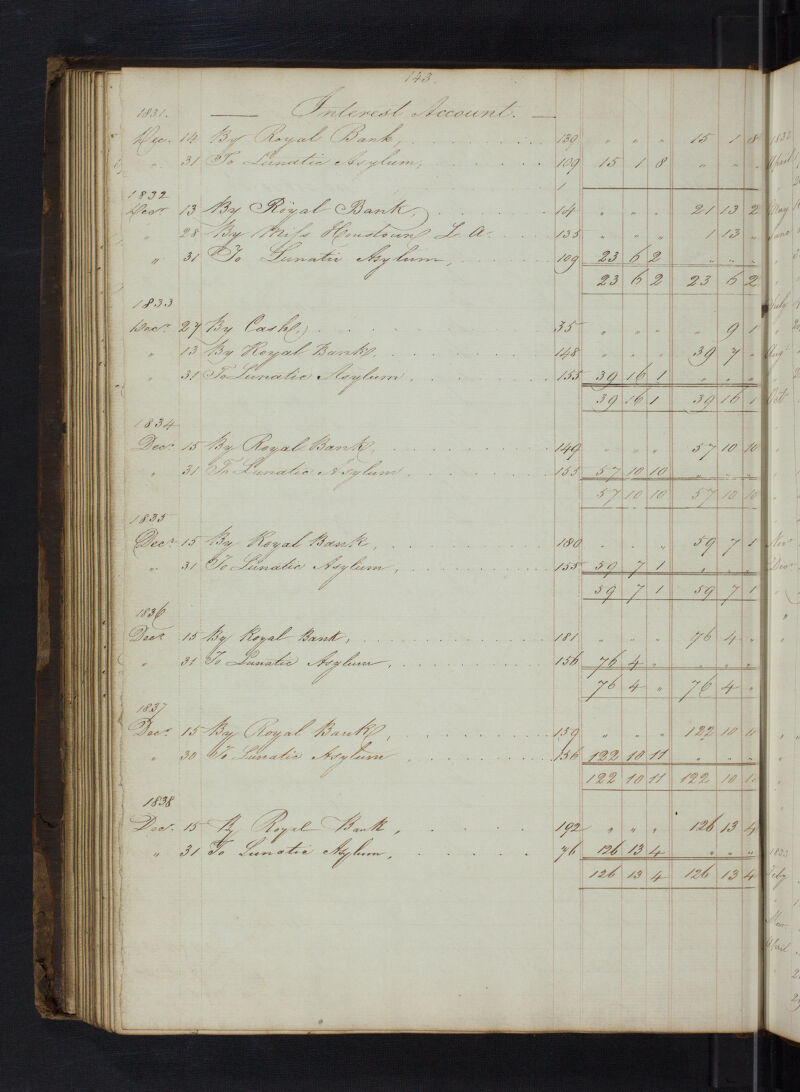 143.
1831. — Interest Account. —
Dec. 14 By Royal Bank, 139 " " " 15 1 8
" 31 To Lunatic Asylum, 109 15 1 8 " " "
1832
Decr 13 By Royal Bank, 14 " " " 21 13 2
" 28 By Miss Houstoun L. A. 135 " " " 1 13 "
" 31 To Lunatic Asylum, 109 23 6 2 " " "
23 6 2 23 6 2
1833
Decr. 27 By Cash, 35 " " " " 9 1
" 13 By Royal Bank, 148 " " " 39 7 "
" 31 To Lunatic Asylum 155 39 16 1 " " "
39 16 1 39 16 1
1834
Decr. 15 By Royal Bank, 149 " " " 57 10 10
" 31 To Lunatic Asylum 155 57 10 10 " " "
57 10 10 57 10 10
1835
Decr. 15 By Royal Bank, 180 " " " 59 7 1
" 31 To Lunatic Asylum, 155 59 7 1 " " "
59 7 1 59 7 1
1836
Decr. 15 By Royal Bank, 181 " " " 76 4 "
" 31 To Lunatic Asylum, 156 76 4 " " " "
76 4 " 76 4 "
1837
Decr. 15 By Royal Bank, 159 " " " 122 10 11
" 30 To Lunatic Asylum 156 122 10 11 " " "
122 10 11 122 10 11
1838
Decr. 15 By Royal Bank, 192 " " " 126 13 4
" 31 To Lunatic Asylum, 76 126 13 4 " " "
126 13 4 126 13 4